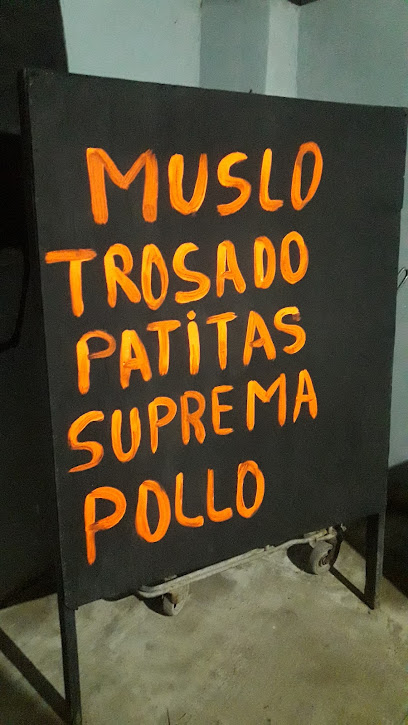 MUSLO
TROSADO
PATiTAS
SUPREMA
POLLO